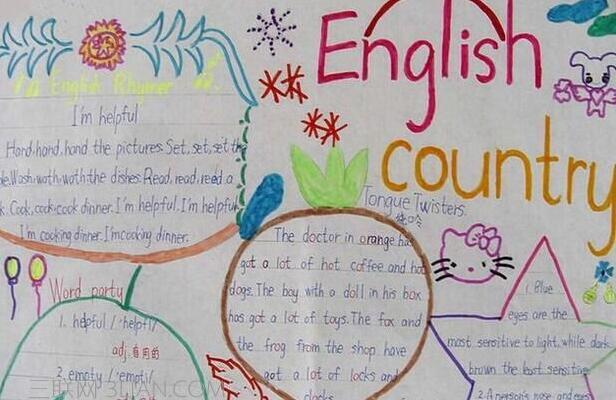 English
country
English Rhymer
I'm helpful
Hand, hand, hand the pictures. Set, set, set the
Wash, wath, wath the dishes. Read, read, reed a
Cook, cook, cook dinner. I'm helpful. I'm helpful
I'm cooking dinner. I'm cooking dinner.
Word party
1. helpful /ˈhelpfl/
adj. 有用的
2. empty /ˈempti/
Tongue Twisters.
The doctor in orange has
got a lot of hot coffee and hot
dogs. The boy with a doll in his box
has got a lot of toys. The fox and
the frog from the shop have
got a lot of locks and
clocks
1. Blue
eyes are the
most sensitive to light, while dark
brown the least sensitive
2. A person's nose and ears
三联网 3LIAN.COM